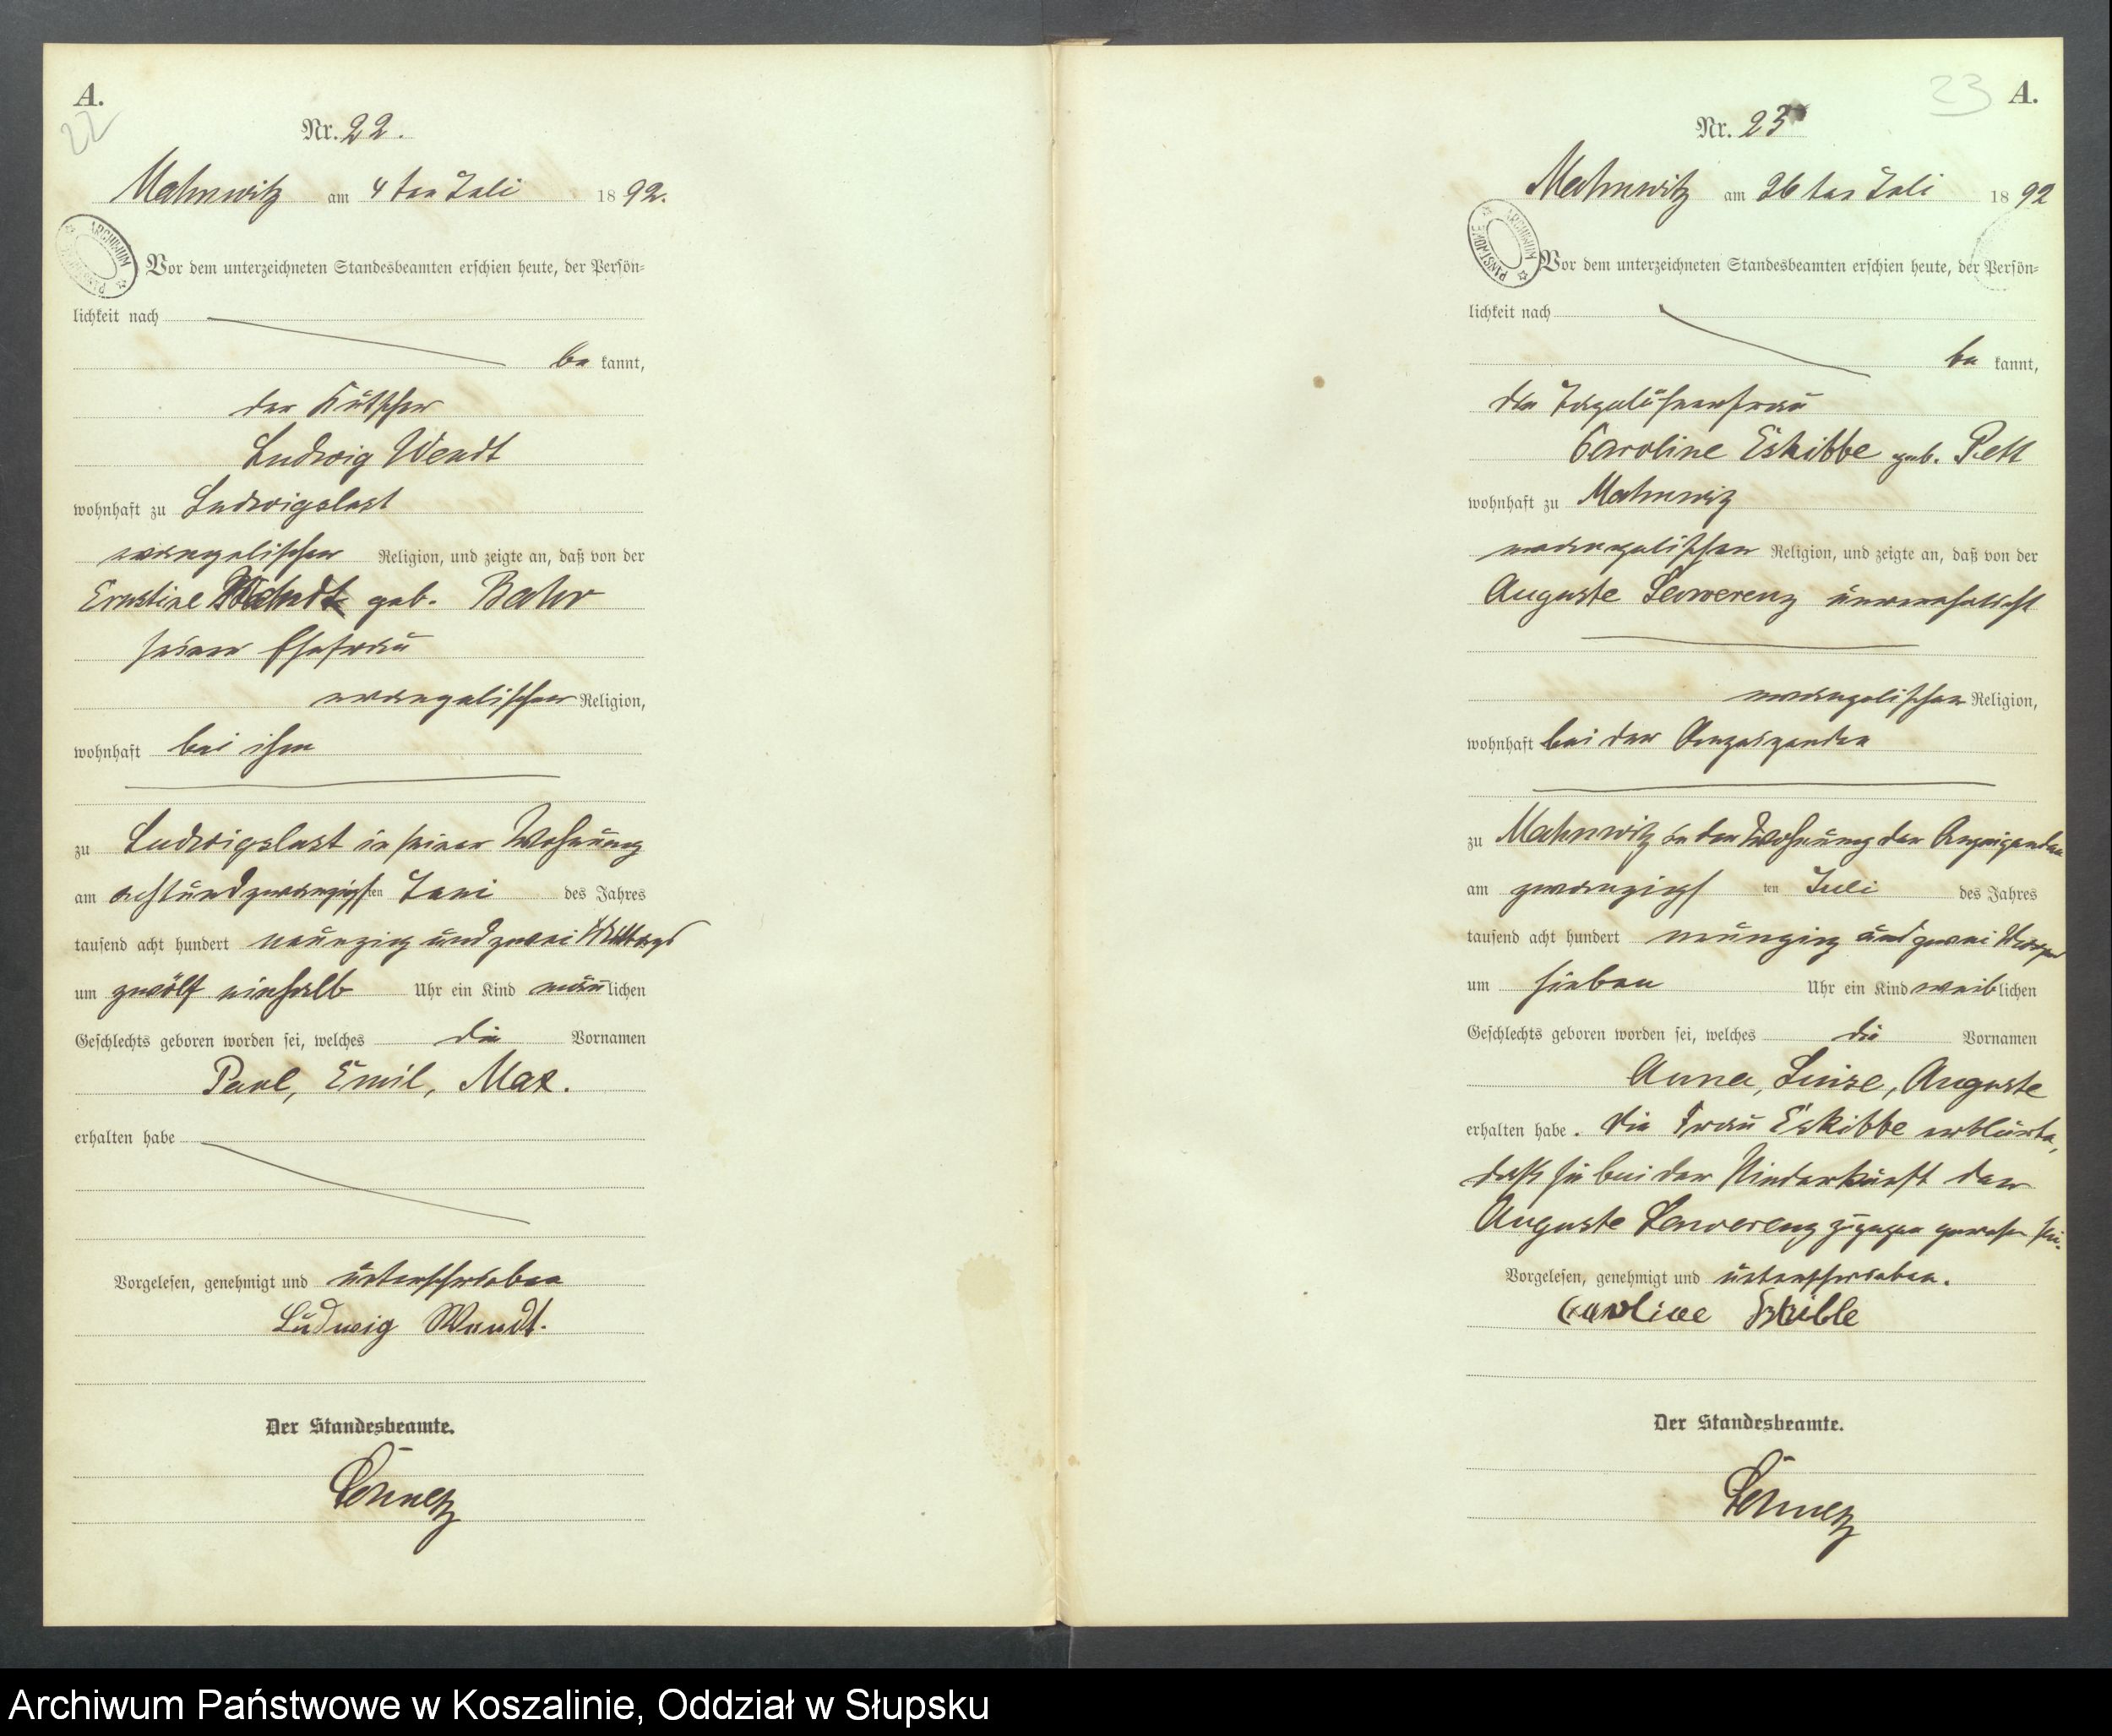 A.
22
Nr. 22.
Mahnwitz am 4ten Juli 1892.
ARCHIWUM PAŃSTWOWE
Vor dem unterzeichneten Standesbeamten erschien heute, der Persön=
lichkeit nach
be kannt,
der Kutscher
Ludwig Wendt
wohnhaft zu Ludwigslust
evangelischer Religion, und zeigte an, daß von der
Ernstine Wendt geb. Bahr
seiner Ehefrau
evangelischer Religion,
wohnhaft bei ihm
zu Ludwigslust in seiner Wohnung
am achtundzwanzigsten Juni des Jahres
tausend acht hundert neunzig und zwei Mittags
um zwölf einhalb Uhr ein Kind männlichen
Geschlechts geboren worden sei, welches die Vornamen
Paul, Emil, Max.
erhalten habe
Vorgelesen, genehmigt und unterschrieben
Ludwig Wendt.
Der Standesbeamte.
23 A.
Nr. 23
Mahnwitz am 26ten Juli 1892
ARCHIWUM PAŃSTWOWE
Vor dem unterzeichneten Standesbeamten erschien heute, der Persön=
lichkeit nach
be kannt,
die Tagelöhnerfrau
Caroline Eskibbe geb. Pett
wohnhaft zu Mahnwitz
evangelischer Religion, und zeigte an, daß von der
Auguste Lawerenz unverehelicht
evangelischer Religion,
wohnhaft bei der Anzeigenden
zu Mahnwitz in der Wohnung der Anzeigenden
am zwanzigsten Juli des Jahres
tausend acht hundert neunzig und zwei Morgens
um sieben Uhr ein Kind weiblichen
Geschlechts geboren worden sei, welches die Vornamen
Anna, Luise, Auguste
erhalten habe. Die Frau Eskibbe erklärte,
daß sie bei der Niederkunft der
Auguste Lawerenz zugegen gewesen sei.
Vorgelesen, genehmigt und unterschrieben.
Caroline Eskibbe
Der Standesbeamte.
Archiwum Państwowe w Koszalinie, Oddział w Słupsku